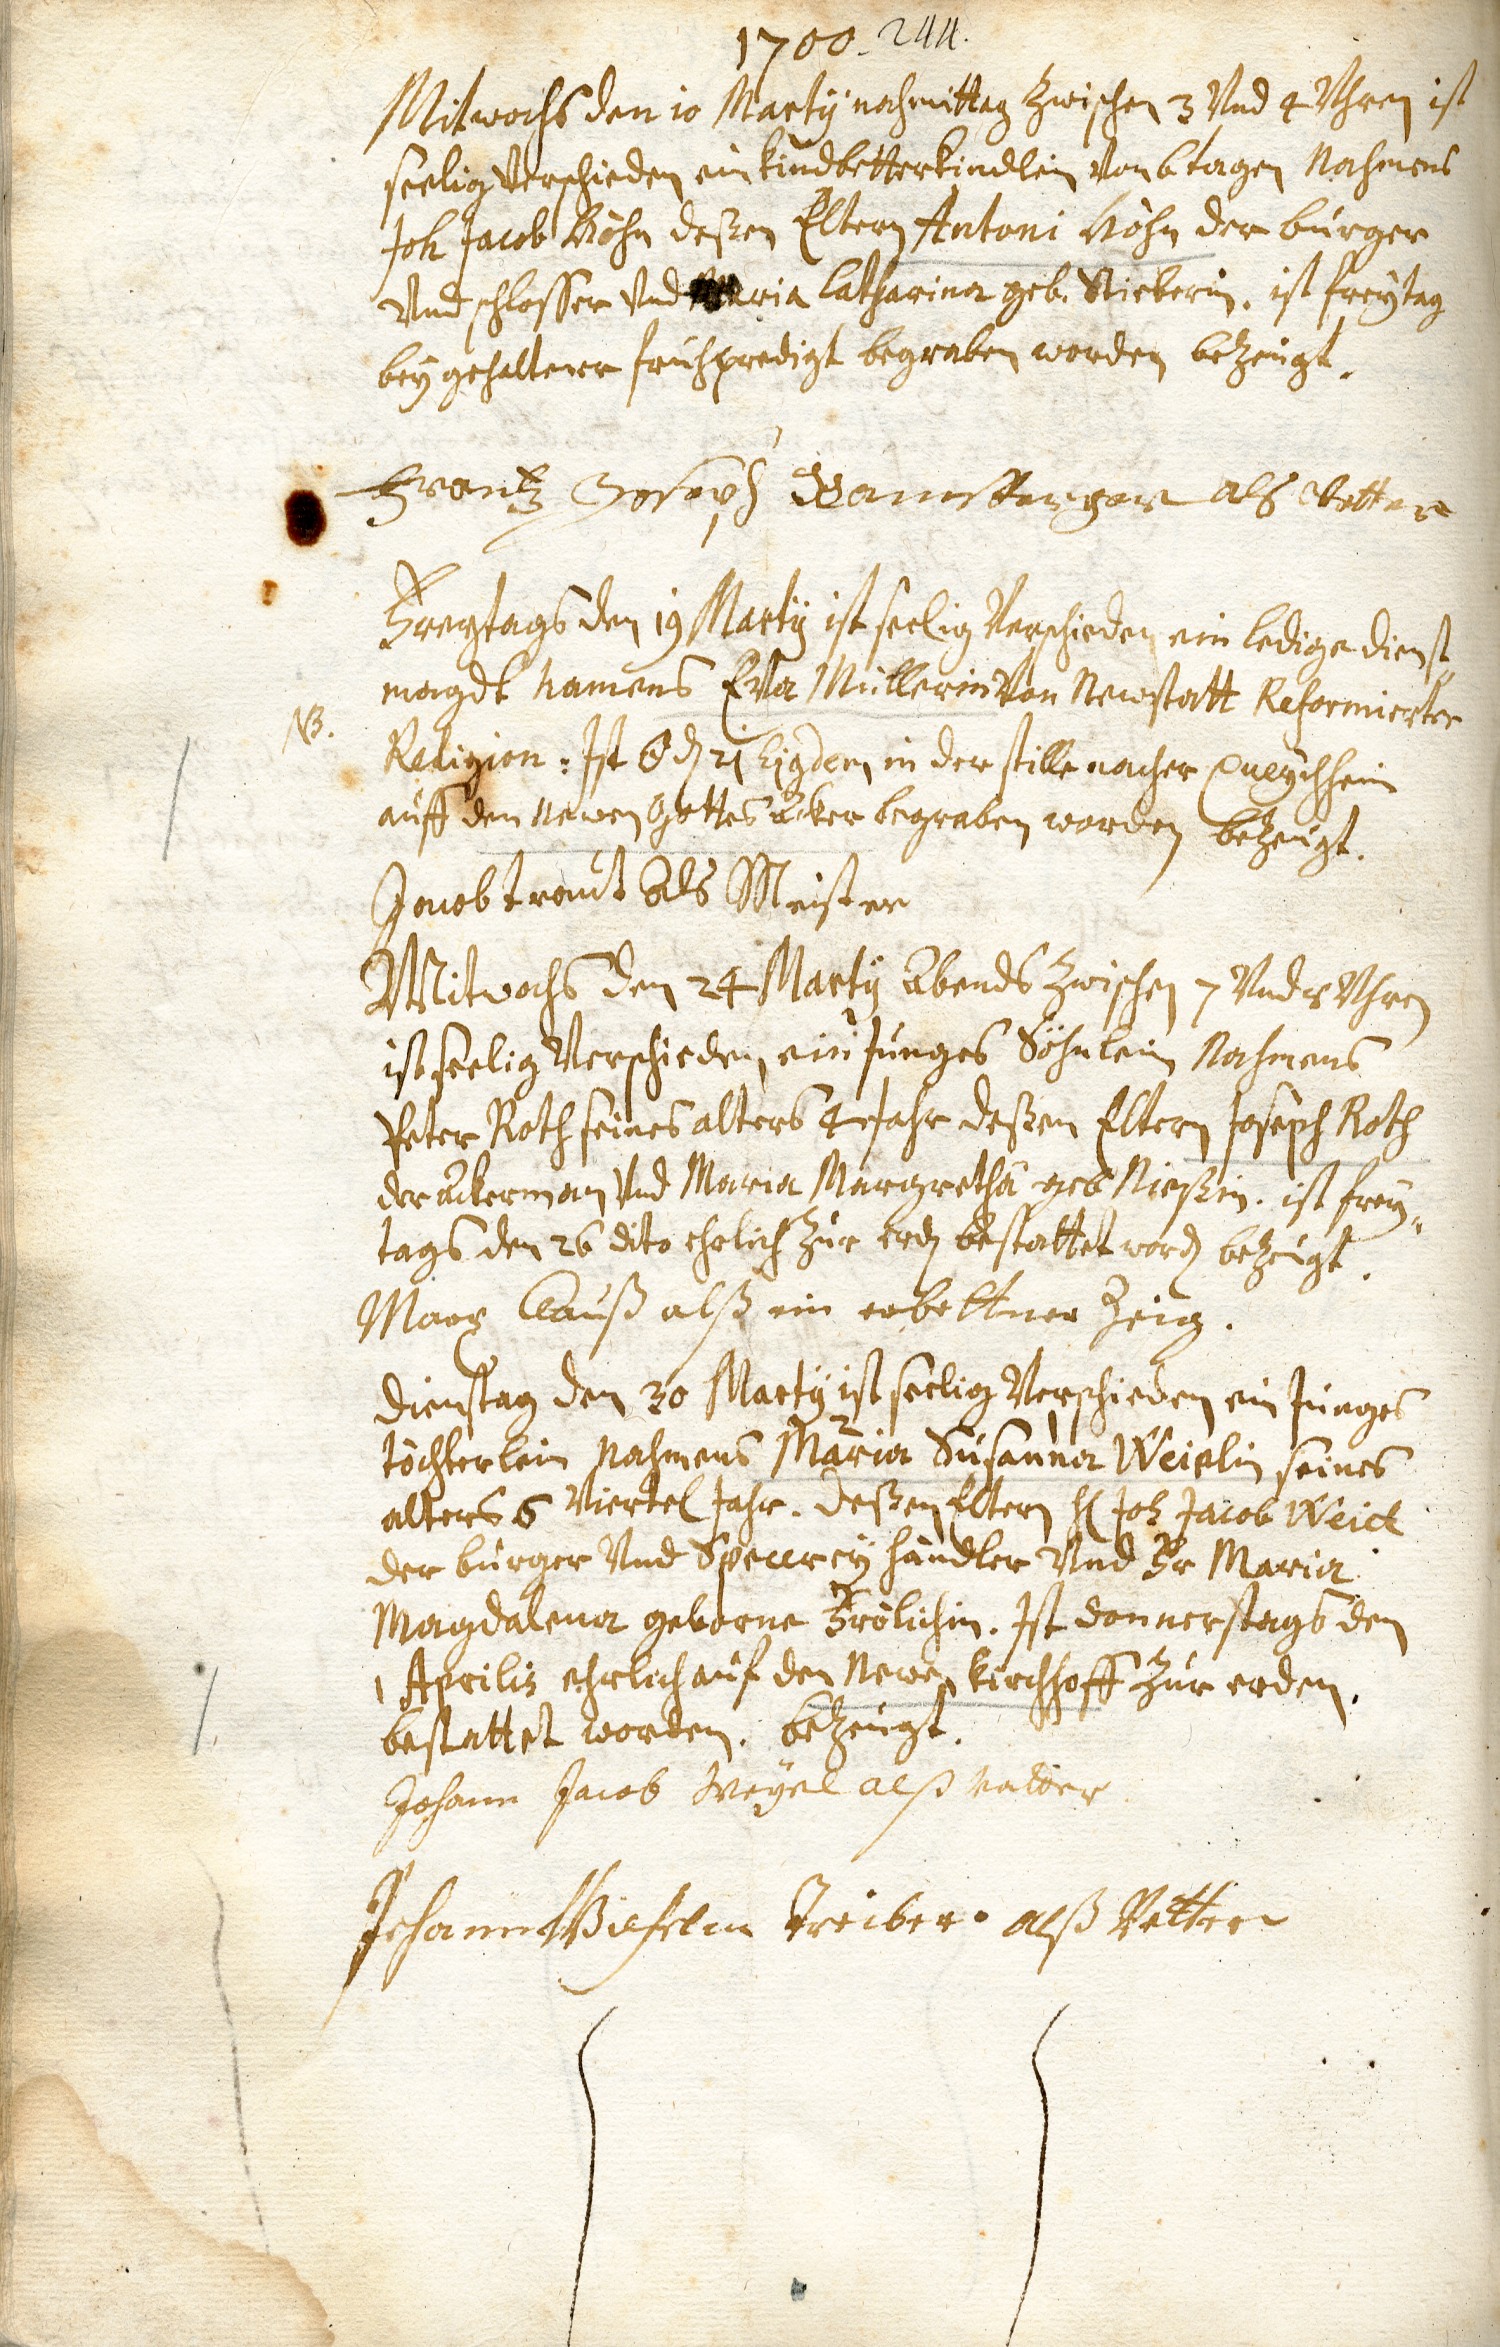 1700. 244.
Mitwochs den 10 Martÿ nachmittag zwischen 3 Vnd 4 Vhren ist
seelig Verschieden ein kindbetterkindlein Von 6 tagen Nahmens
Joh Jacob Höhn deßen Eltern Antoni Höhn der burger
Vnd schlosser Vnd Maria Catharina geb. Stieberin. ist freÿtag
beÿ gehaltener fruhpredigt begraben worden bezeugt.
Frantz Joseph als Vetter
Freytags den 19 Martÿ ist seelig Verschieden ein ledige dienst„
magdt Namens Eva Müllerin Von Newstatt Reformierter
NB.
Religion: Ist den 21 in der stille nacher Queychheim
auff den Newen Gottes Acker begraben worden bezeugt.
Jacob traut Als Meister
Mitwochs den 24 Martÿ Abends zwischen 7 Vnd 8 Vhren
ist seelig Verschieden ein Junges Söhnlein Nahmens
Peter Roth seines alters 4 Jahr deßen Eltern Joseph Roth
der Ackerman Vnd Maria Margretha geb Nießin. ist freÿ„
tags den 26 dito ehrlich zur erd bestattet word bezeugt.
Marx Clauß alß ein erbettner Zeig.
Dienstag den 30 Martÿ ist seelig Verschieden ein Junges
töchterlein Nahmens Maria Susanna Weielin seines
alters 6 Viertel Jahr. deßen Eltern H Joh Jacob Weiel
der burger Vnd Specereÿ händler Vnd Fr Maria
Magdalena geborne Frölichin. Ist donnerstags den
1 Aprilis ehrlich auf den Newen kirchhoff zur erden
bestattet worden. bezeugt.
Johann Jacob Weÿel alß Vatter
Johann Wilhelm Treiber alß Vetter